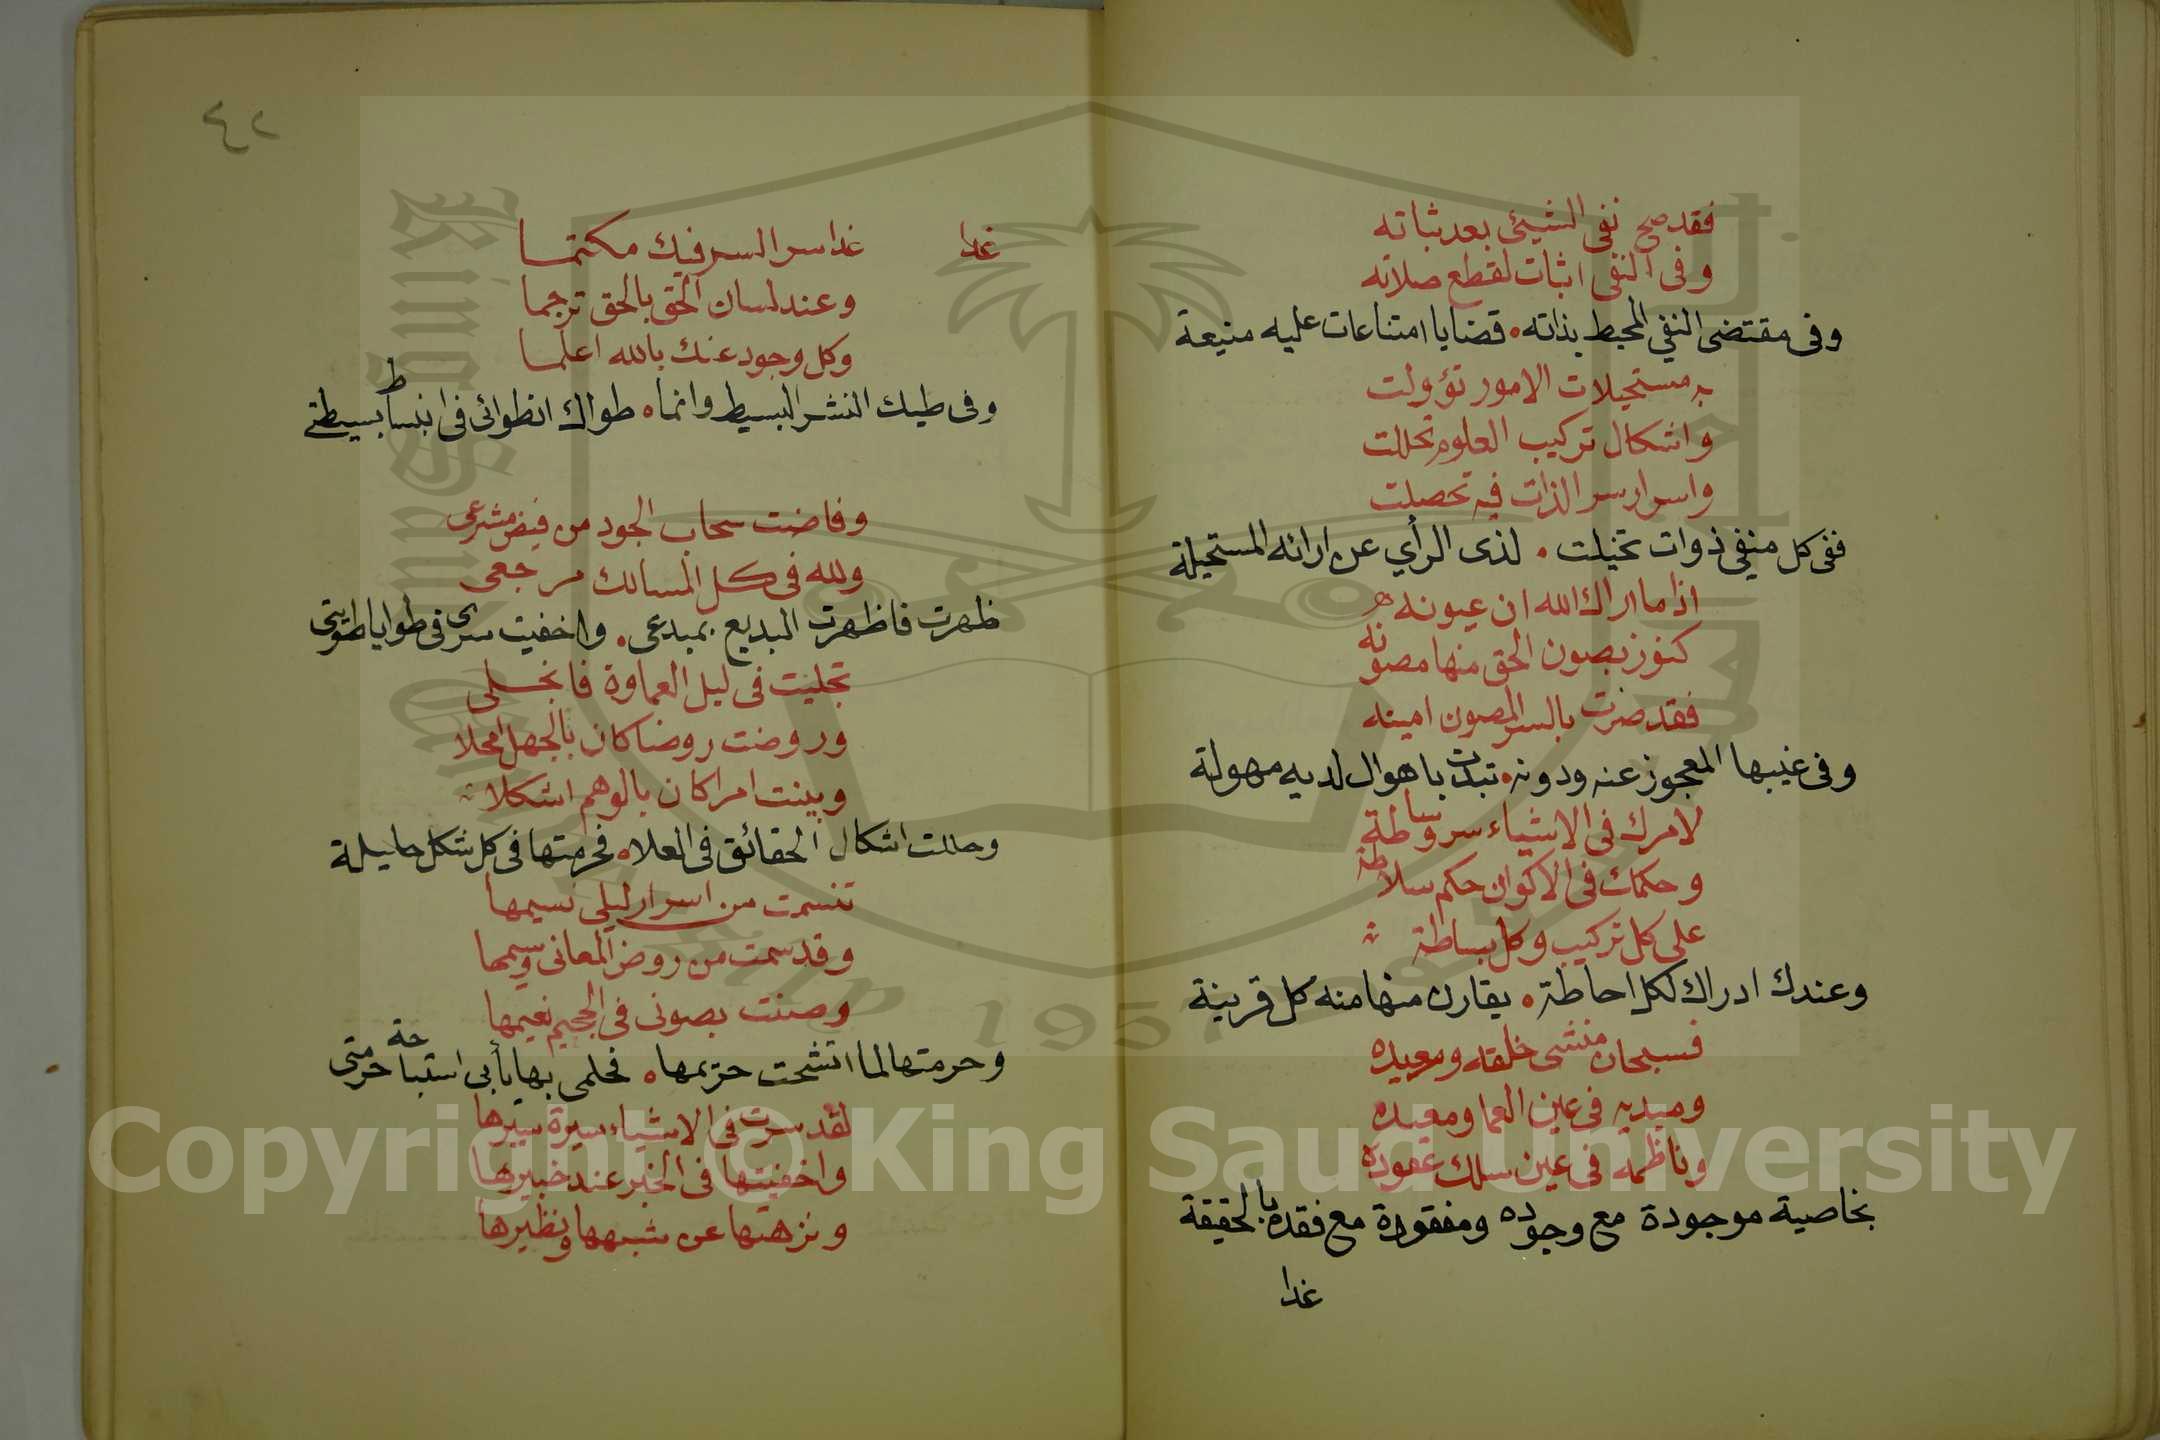 فقد صح نفى الشيئى بعد ثباته
وفى النفى اثبات لقطع صلاته
وفى مقتضى النفي المحيط بذاته • قضايا امتناعات عليه منيعة
به مستحيلات الامور تؤولت
واشكال تركيب العلوم تحللت
واسرار سر الذات فيه تحصلت
ففى كل منفي ذوات تخيلت • لذى الرأي عن ارائه المستحيلة
اذا ما اراك الله ان عيونه
كنوز بصون الحق منها مصونه
فقد صرت بالسر المصون امينه
وفى غيبها المعجوز عنه ودونه • تبدت باهوال لديه مهولة
لامرك فى الاشياء سر وساطة
وحكمك فى الاكوان حكم سلاطة
على كل تركيب وكل بساطة
وعندك ادراك لكل احاطة • يقارن منها منه كل قرينة
فسبحان منشى خلقه ومعيده
ومبديه فى عين العما ومعيده
وناظمه فى عين سلك عقوده
بخاصية موجودة مع وجوده ومفقودة مع فقده بالحقيقة
غدا
٤٢
غدا غدا سر السر فيك مكتتما
وعند لسان الحق بالحق ترجما
وكل وجود عنك بالله اعلما
وفى طيك النشر البسيط وانما • طواك انطوائى فى انبساط بسيطتي
وفاضت سحاب الجود من فيض مشرعى
ولله فى كل المسالك مرجعى
ظهرت فاظهرت البديع بمبدعى • واخفيت سرى فى طوايا طويتى
تجليت فى ليل العماوة فانجلى
وروضت روضا كان بالجهل امحلا
وبينت امرا كان بالوهم اشكلا
وحللت اشكال الحقائق فى العلا • فحرمتها فى كل شكل حليلة
تنسمت من اسرار ليلى نسيمها
وقد سمت من روض المعانى وسيمها
وصنت بصونى فى الجحيم نعيمها
وحرمتها لما اتشحت حريمها • فحلمى بها يأبى استباحة حرمتى
لقد سرت فى الاشياء سيرة سيرها
واخفيتها فى الخبر عند خبيرها
ونزهتها عن شبهها ونظيرها
Copyright © King Saud University
King Saud University
1957